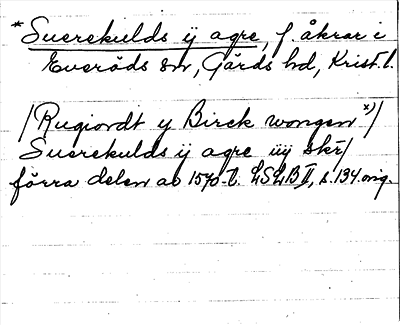 *Suerekulds ij agre, f. åkrar i
Everöds sn, Gärds hd, Krist. l.
/Rugiordt y Birck wongen *)/
Suerekulds ij agre iiij skr/
förra delen av 1570-t. LSLB II, s. 134 orig.